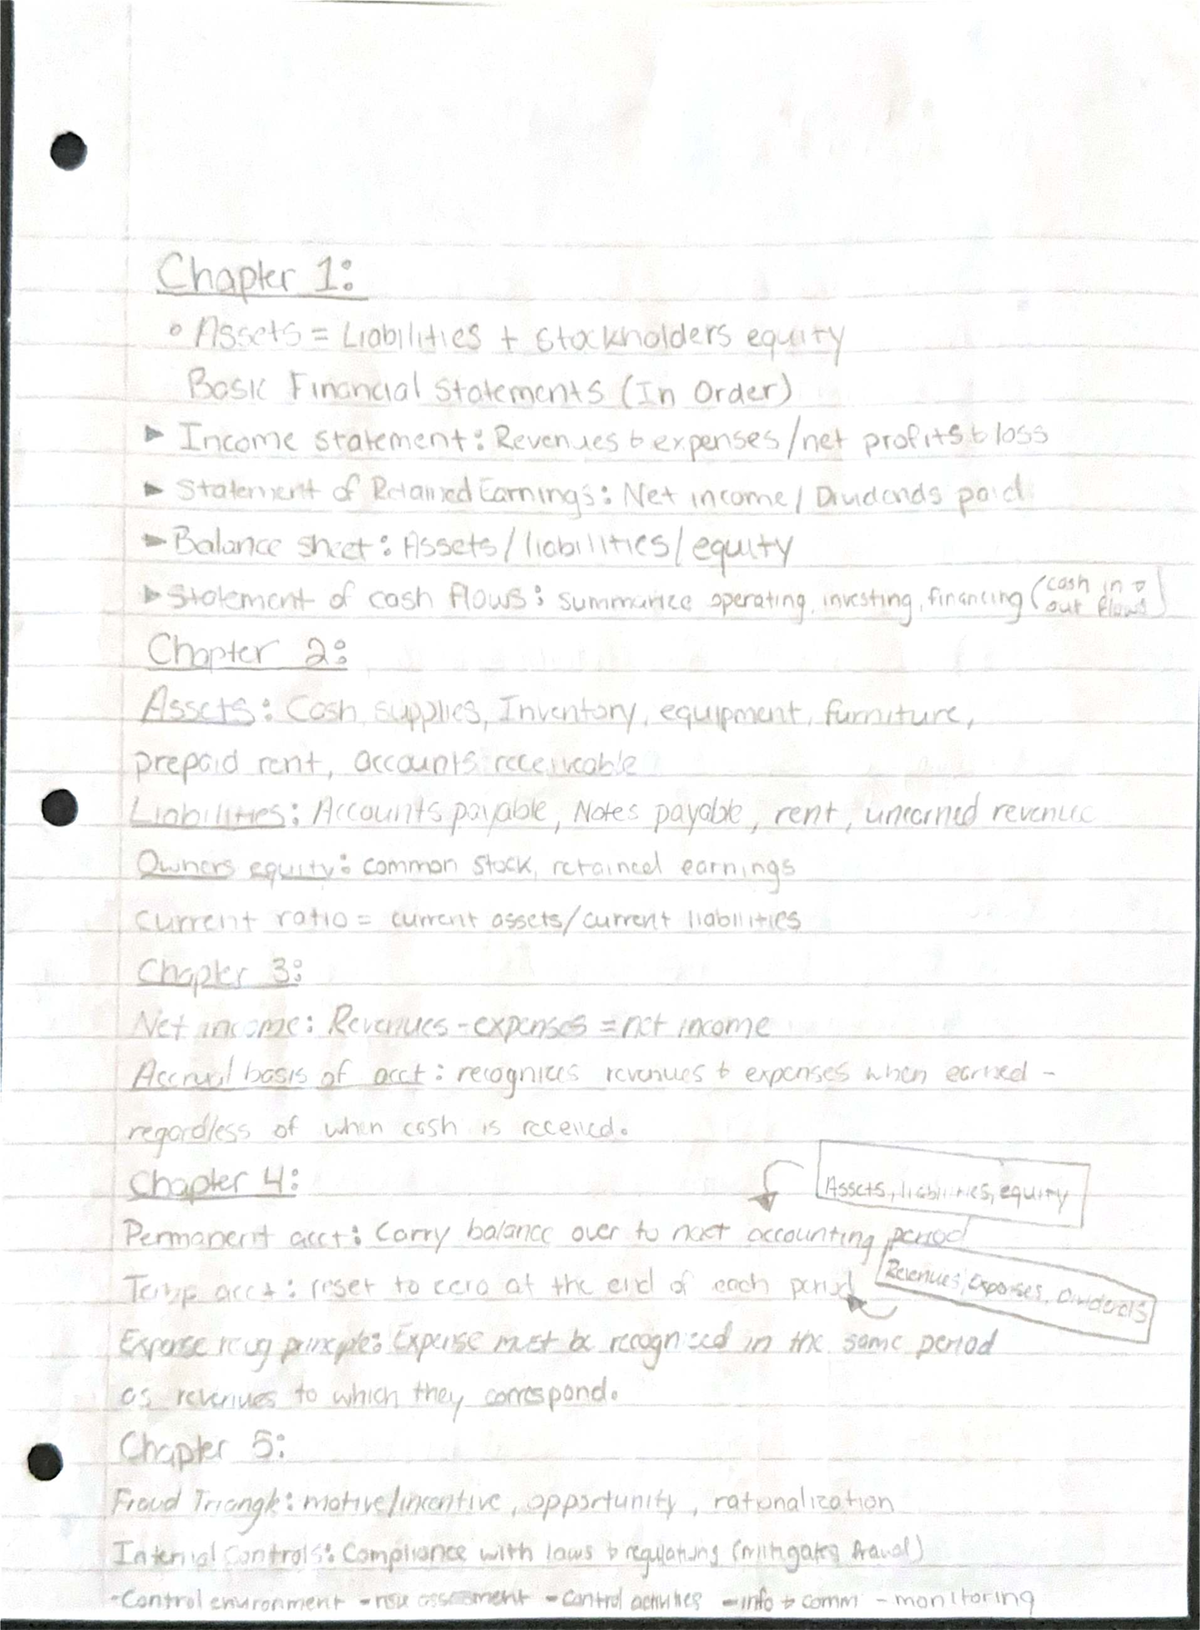 Chapter 1:
° Assets = Liabilities + Stockholders equity
Basic Financial Statements (In Order)
► Income statement: Revenues & expenses/net profits & loss
► Statement of Retained Earnings: Net income/ Dividends paid
► Balance sheet: Assets/liabilities/equity
► Statement of cash flows: summarize operating, investing, financing (cash in & out flows)
Chapter 2:
Assets: Cash, supplies, Inventory, equipment, furniture,
prepaid rent, accounts receiveable
Liabilities: Accounts payable, Notes payable, rent, unearned revenue
Owners equity: common stock, retained earnings
current ratio = current assets/current liabilities
Chapter 3:
Net income: Revenues - expenses = net income
Accrual basis of acct: recognizes revenues & expenses when earned -
regardless of when cash is received.
Chapter 4:
Assets, liabilities, equity
Permanent acct: Carry balance over to next accounting period
Temp acct: reset to zero at the end of each period
Revenues, Expenses, Dividends
Expense recog principle: Expense must be recognized in the same period
as revenues to which they correspond.
Chapter 5:
Fraud Triangle: motive/incentive, opportunity, rationalization
Internal Controls: Compliance with laws & (mitigates fraud)
-Control environment -risk assessment -control activities -info & comm -monitoring